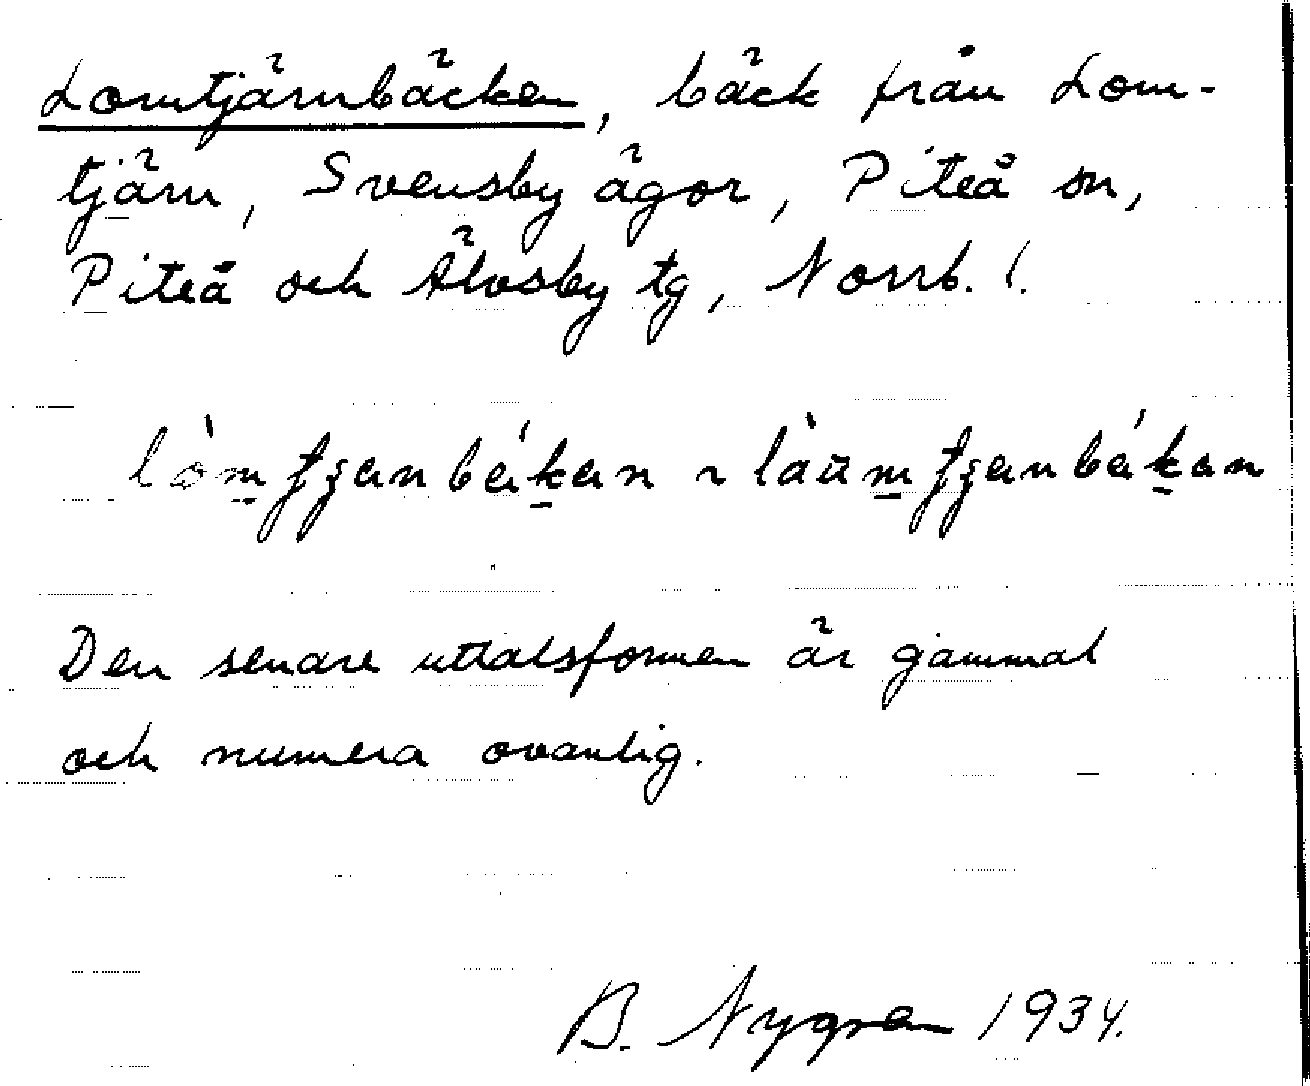 Lomtjärnbäcken, bäck från Lom-
tjärn, Svensby ägor, Piteå sn,
Piteå och Älvsby tg, Norrb. l.
Den senare uttalsformen är gammal
och numera ovanlig.
B. Nygren 1934.